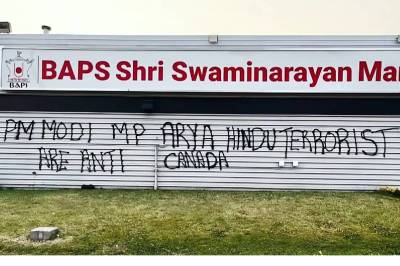 BAPS Shri Swaminarayan Man
BAPS
PM MODI MP ARYA HINDU TERRORIST
ARE ANTI CANADA